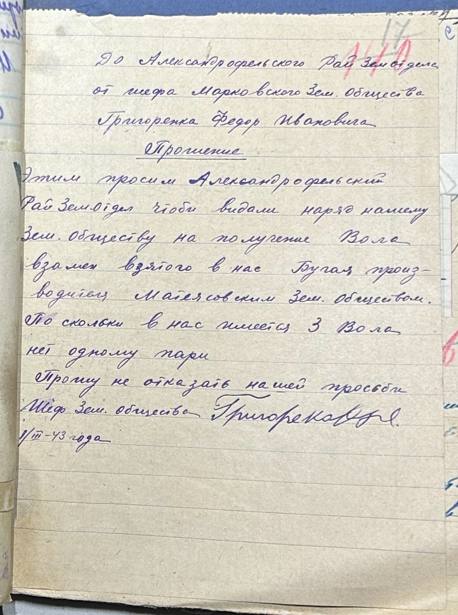 17
До Александрофельского РайЗемотдела
от шефа Марковского Зем. общества
Григоренка Федор Ивановича
Прошение
Этим просим Александрофельский
РайЗемотдел чтоби видали наряд нашему
Зем. обществу на получение Вола
взамен взятого в нас Бугая произ-
водитец Матясовским Зем. обществом.
По скольки в нас имеется 3 Вола
нет одному пари
Прошу не отказать нашей просьби
Шеф Зем. общества
/III-43 года